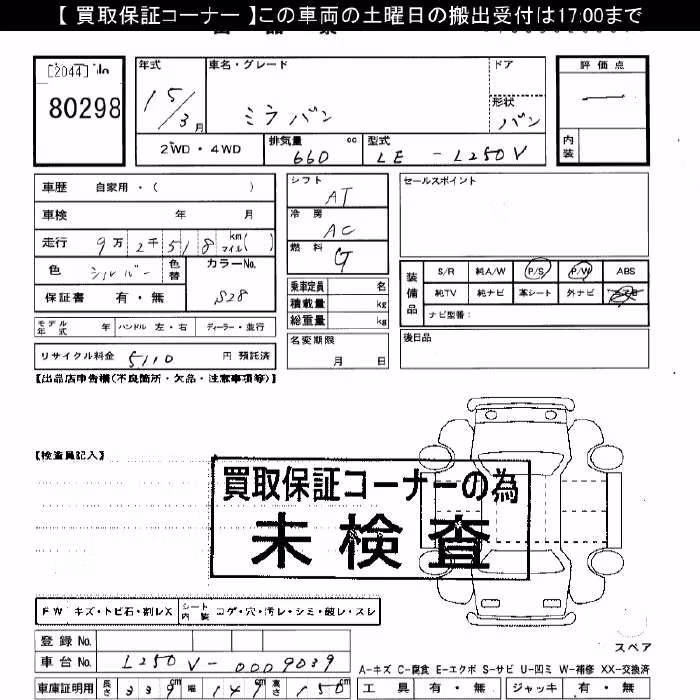 【 買取保証コーナー 】この車両の土曜日の搬出受付は17:00まで
[2044]
80298
年式
15/3月
車名・グレード
ミラバン
ドア
形状
バン
評価点
―
内装
2WD・4WD
排気量 cc
660
型式
LE - L250V
車歴 自家用・( )
車検 年 月
走行 9万2千518 km マイル( )
色 シルバー
色替
カラーNo.
S28
保証書 有・無
モデル年式 年 ハンドル 左・右 ディーラー・並行
リサイクル料金 5110 円 預託済
シフト
AT
冷房
AC
燃料
G
乗車定員 名
積載量 kg
総重量 kg
名変期限
月 日
セールスポイント
装備品
S/R 純A/W P/S P/W ABS
純TV 純ナビ 革シート 外ナビ
ナビ型番:
後日品
【出品店申告欄(不良箇所・欠品・注意事項等)】
【検査員記入】
買取保証コーナーの為
未検査
FW キズ・トビ石・割レX
シート内装 コゲ・穴・汚レ・シミ・破レ・スレ
スペア
登録No.
車台No. L250V-0009039
車庫証明用 長さ 339cm 幅 149cm 高さ 150cm
A-キズ C-腐食 E-エクボ S-サビ U-凹ミ W-補修 XX-交換済
工具 有・無 ジャッキ 有・無